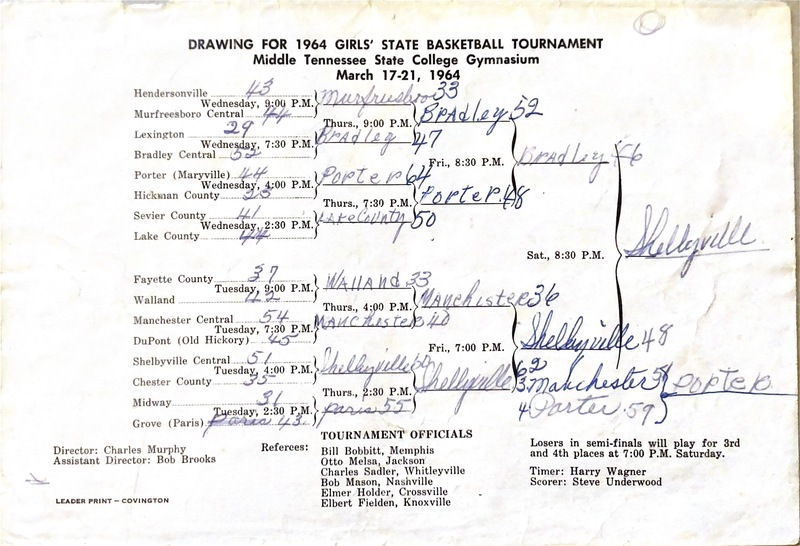 DRAWING FOR 1964 GIRLS' STATE BASKETBALL TOURNAMENT
Middle Tennessee State College Gymnasium
March 17-21, 1964
Hendersonville 43
Wednesday, 9:00 P.M. Murfreesboro 33
Murfreesboro Central 44
Thurs., 9:00 P.M. Bradley 52
Lexington 29
Wednesday, 7:30 P.M. Bradley 47
Bradley Central 52
Fri., 8:30 P.M. Bradley 46
Porter (Maryville) 44
Wednesday, 4:00 P.M. Porter 64
Hickman County 23
Thurs., 7:30 P.M. Porter 48
Sevier County 41
Wednesday, 2:30 P.M. Lake County 50
Lake County 44
Sat., 8:30 P.M. Shelbyville
Fayette County 37
Tuesday, 9:00 P.M. Walland 33
Walland 42
Thurs., 4:00 P.M. Manchister 36
Manchester Central 54
Tuesday, 7:30 P.M. Manchister 40
DuPont (Old Hickory) 45
Fri., 7:00 P.M. Shelbyville 48
Shelbyville Central 51
Tuesday, 4:00 P.M. Shelbyville 60
Chester County 35
Thurs., 2:30 P.M. Shellyville 62
3. Manchester Porter
Midway 31
Tuesday, 2:30 P.M. Paris 55
4 Porter 59
Grove (Paris) Paris 43
Director: Charles Murphy
Assistant Director: Bob Brooks
LEADER PRINT – COVINGTON
Referees:
TOURNAMENT OFFICIALS
Bill Bobbitt, Memphis
Otto Melsa, Jackson
Charles Sadler, Whitleyville
Bob Mason, Nashville
Elmer Holder, Crossville
Elbert Fielden, Knoxville
Losers in semi-finals will play for 3rd
and 4th places at 7:00 P.M. Saturday.
Timer: Harry Wagner
Scorer: Steve Underwood